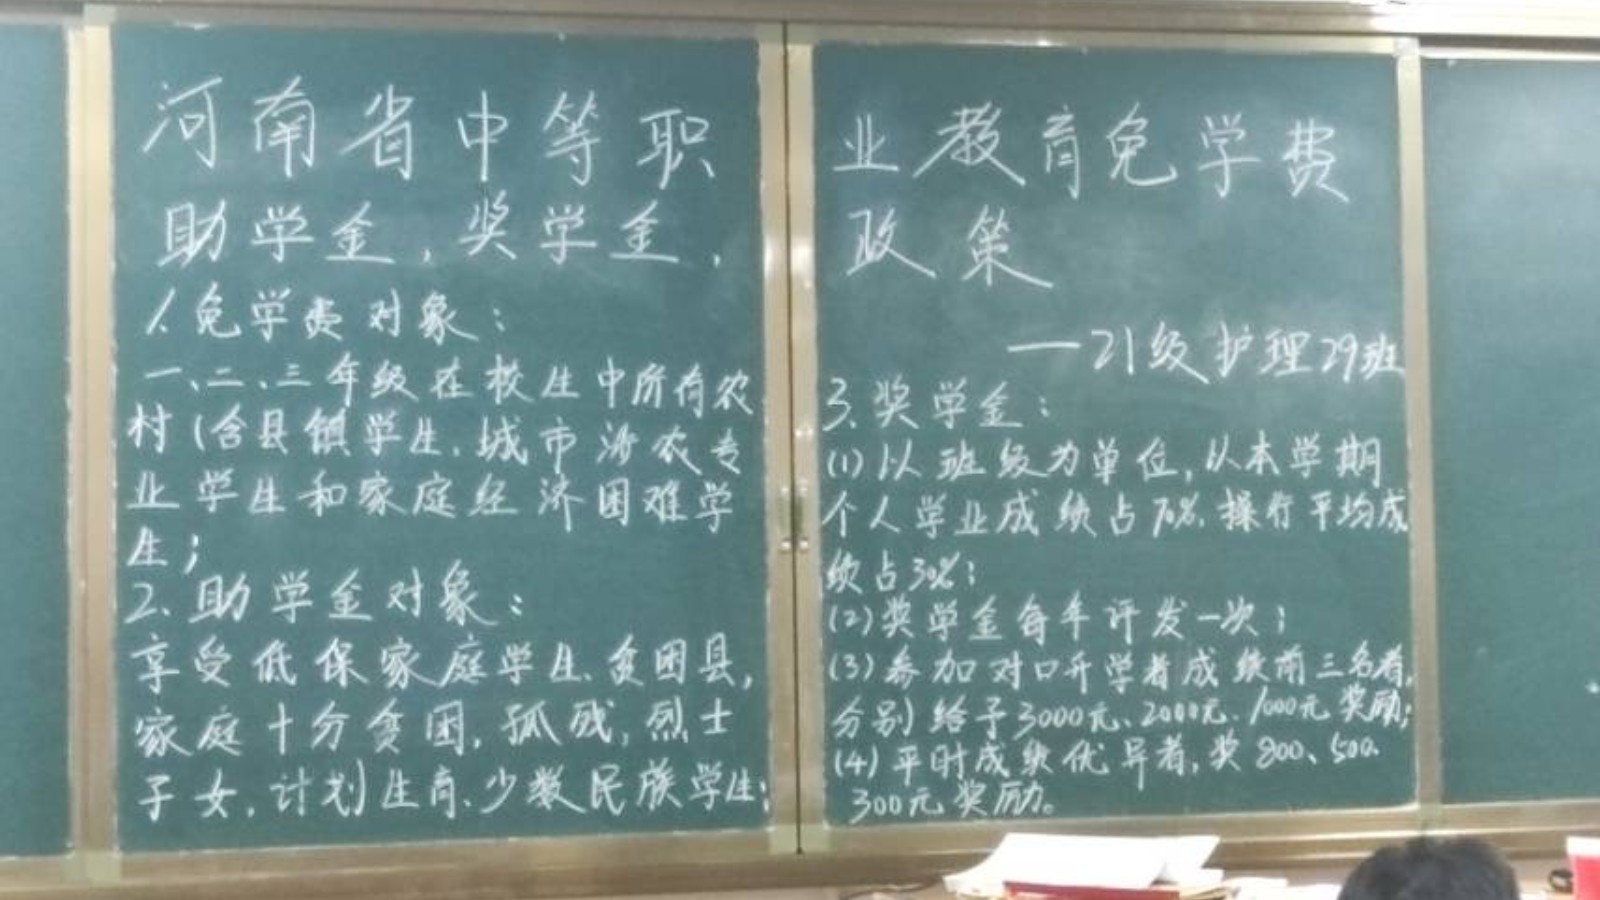 河南省中等职业教育免学费
助学金,奖学金,政策
—21级护理29班
1.免学费对象:
一、二、三年级在校生中所有农
村(含县镇学生、城市涉农专
业学生和家庭经济困难学
生;
2.助学金对象:
享受低保家庭学生、贫困县,
家庭十分贫困,孤残,烈士
子女,计划生育、少数民族学生;
3.奖学金:
(1)以班级为单位,从本学期
个人学业成绩占70%、操行平均成
绩占30%;
(2)奖学金每年评发一次;
(3)参加对口升学着成绩前三名者,
分别给予3000元、2000元、1000元奖励;
(4)平时成绩优异者,奖800、500、
300元奖励。